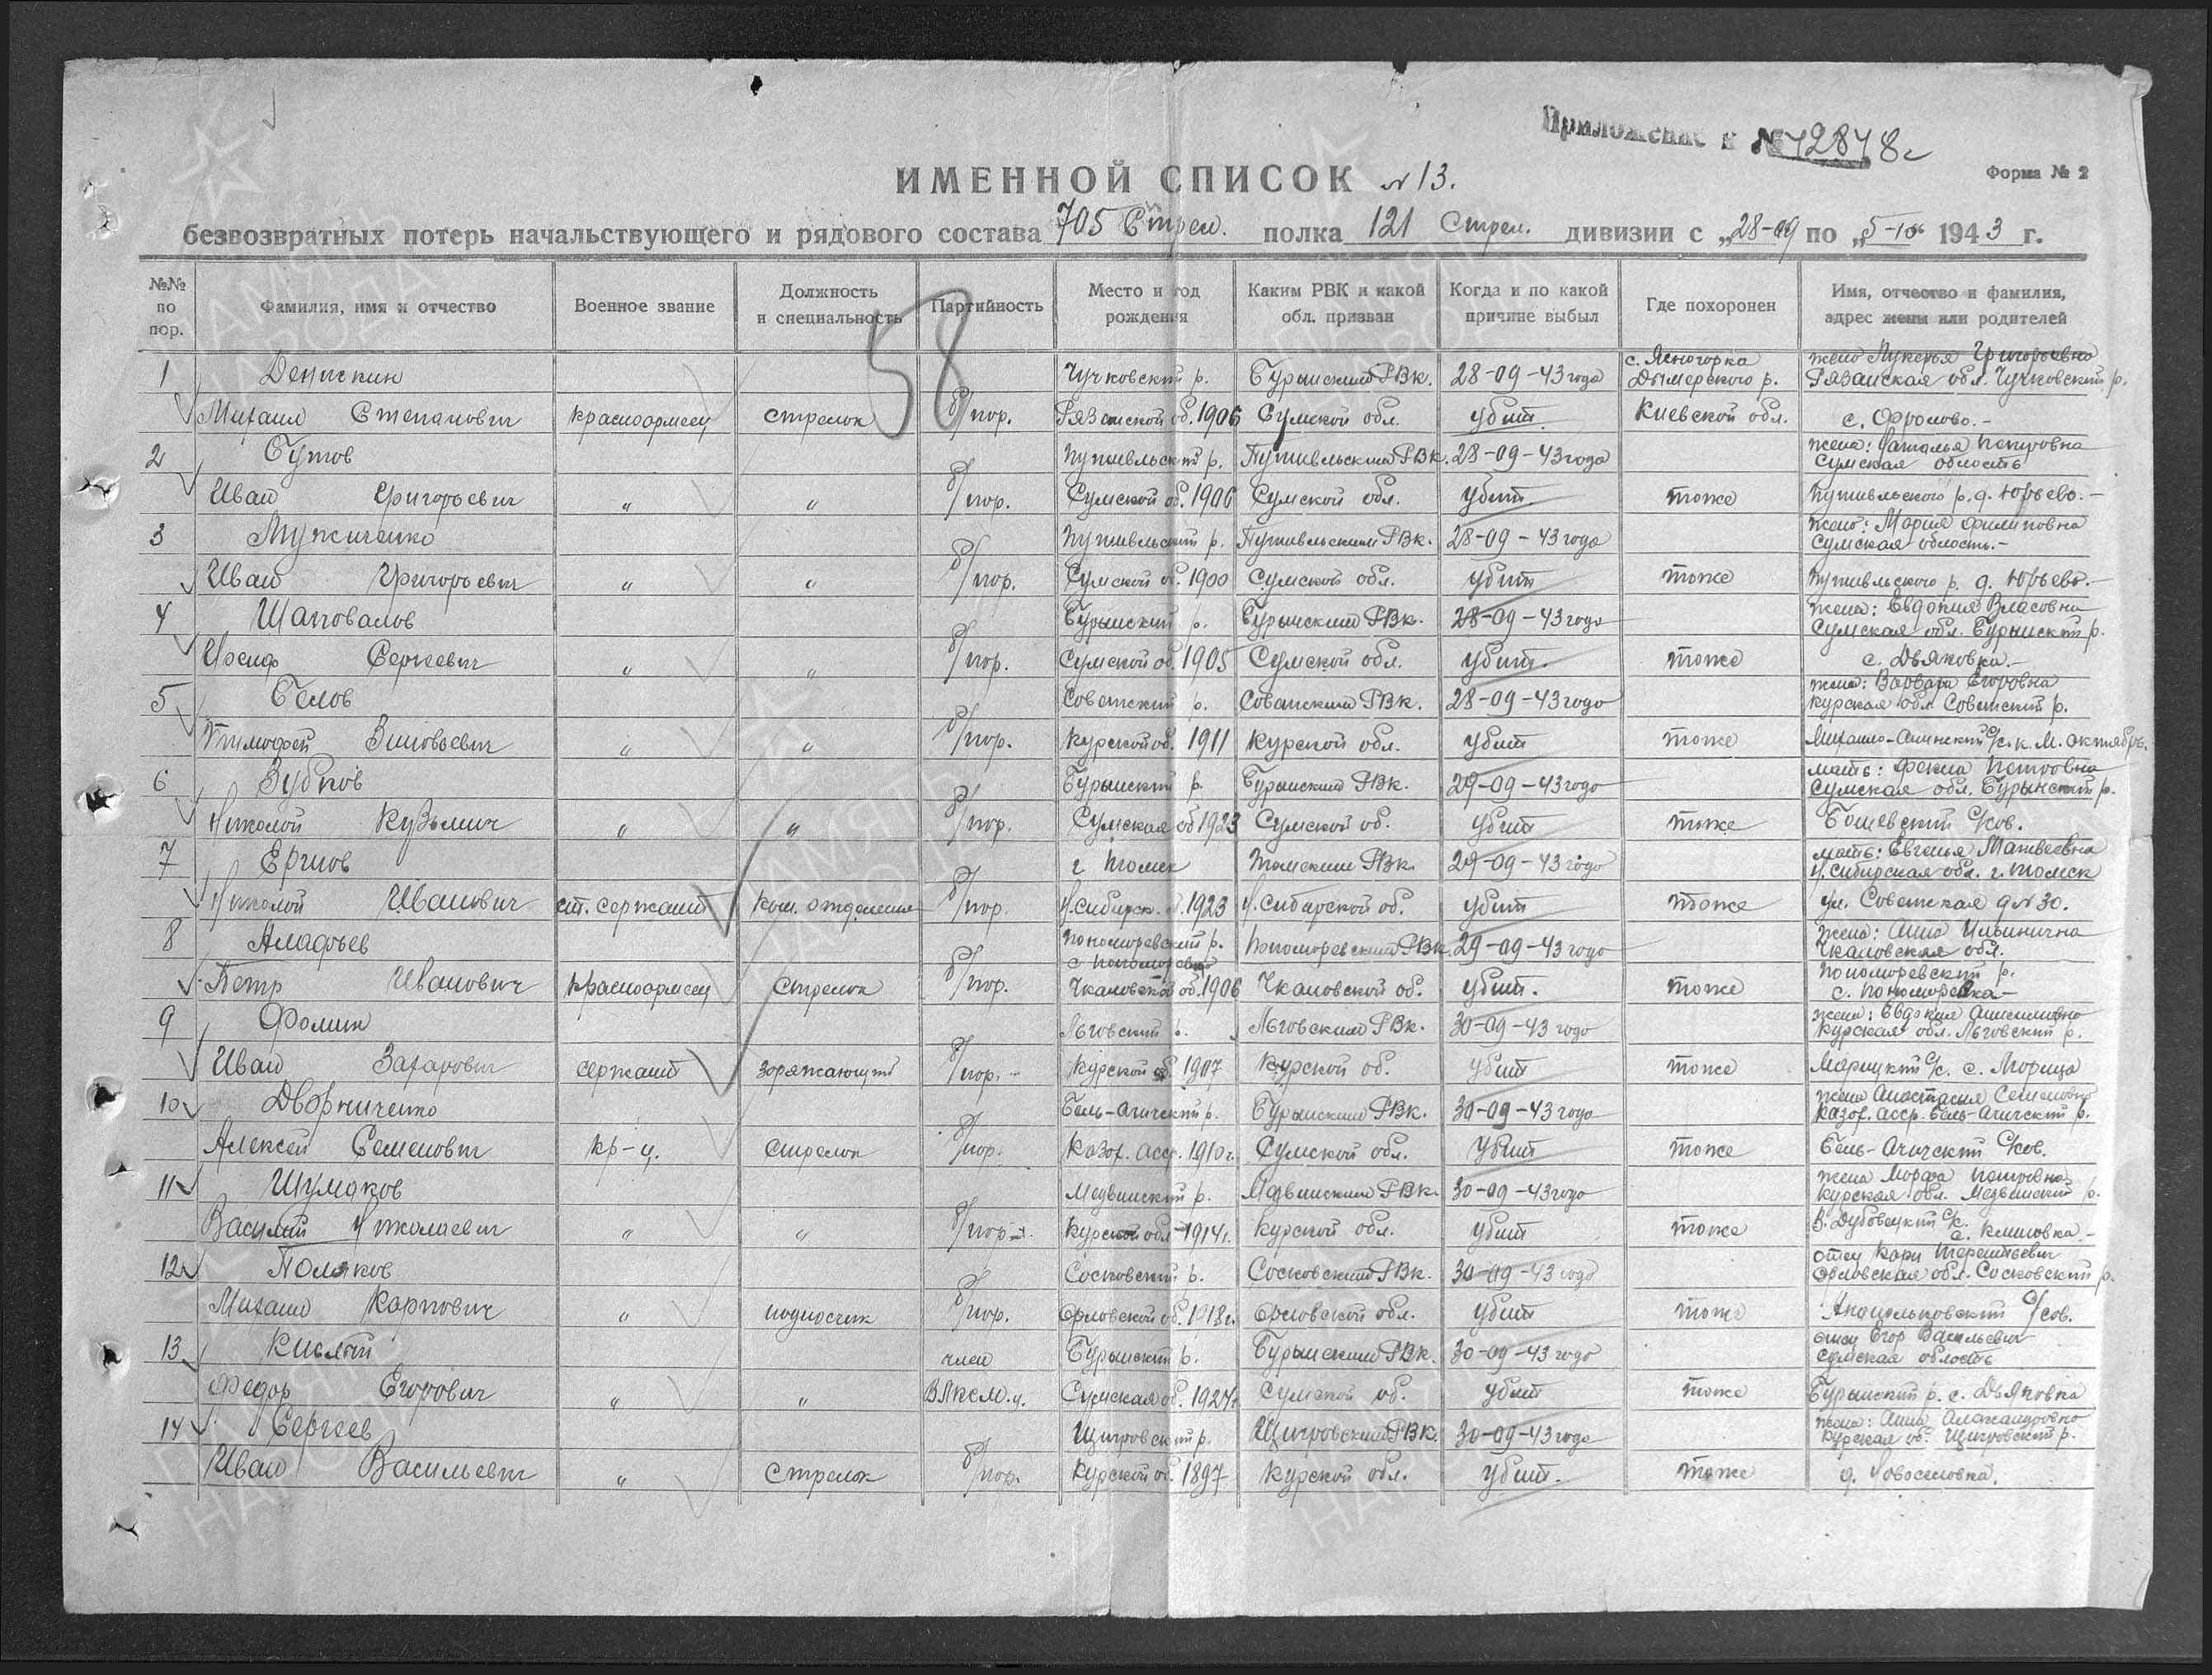 Приложение к № 42848с
ИМЕННОЙ СПИСОК № 13.
Форма № 2
безвозвратных потерь начальствующего и рядового состава 705 Стрел. полка 121 Стрел. дивизии с „28-09 по „5-10 1943 г.
№№ по пор. Фамилия, имя и отчество Военное звание Должность и специальность Партийность Место и год рождения Каким РВК и какой обл. призван Когда и по какой причине выбыл Где похоронен Имя, отчество и фамилия, адрес жены или родителей
58
с. Ясногорка жена Лукерья Григорьевна
1 Денискин Чучковский р. Бурынский РВк. 28-09-43 года Дымерского р. Рязанская обл. Чучковский р.
Михаил Степанович красноармеец стрелок б/пар. Рязанской об. 1906 Сумской обл. убит. Киевской обл. с. Фролово.-
жена: Наталья Петровна
2 Бутов Путивльский р. Путивльский РВк. 28-09-43 года Сумская область
Иван Григорьевич " " б/пар. Сумской об. 1906 Сумской обл. убит. тоже Путивльского р. д. Юрьево.-
жена: Мария Филиповна
3 Мужиченко Путивльский р. Путивльским РВк. 28-09-43 года Сумская область.-
Иван Григорьевич " " б/пар. Сумской об. 1900 Сумской обл. убит тоже Путивльского р. д. Юрьево.-
жена: Евдокия Власовна
4 Шаповалов Бурынский р. Бурынским РВк. 28-09-43 года Сумская обл. Бурынский р.
Иосиф Сергеевич " " б/пар. Сумской об. 1905 Сумской обл. убит. тоже с. Дьяковка.-
жена: Варвара Егоровна
5 Белов Советский р. Советским РВк. 28-09-43 года Курская обл. Советский р.
Тимофей Зиновьевич " " б/пар. Курской об. 1911 Курской обл. убит тоже Михайло-Анинский с/с. к. М. Октябрь.
мать: Фекла Петровна
6 Зубков Бурынский р. Бурынским РВк. 29-09-43 года Сумская обл. Бурынский р.
Николай Кузьмич " " б/пар. Сумская об 1923 Сумской об. убит тоже с/сов.
мать: Евгенья Матвеевна
7 Ергнов г Томск Томским РВк. 29-09-43 года Н. Сибирская обл. г. Томск
Николай Иванович ст. сержант Ком. отделения б/пар. Н. Сибирск. о. 1923 Н. Сибирской об. убит тоже ул. Советская д № 30.
Пономаревский р. жена: Анна Ильинична
8 Аладьев с Пономаревка Пономаревским РВк 29-09-43 года Чкаловская обл.
Пономаревский р.
Петр Иванович красноармеец Стрелок б/пар. Чкаловской об. 1906 Чкаловской об. убит. тоже с. Пономаревка-
жена: Евдокия
9 Фомин Льговский р. Льговским РВк. 30-09-43 года Курская обл. Льговский р.
Иван Захарович сержант заряжающий б/пар.- Курской об. 1907 Курской об. убит тоже Марицкий с/с. с. Марица
жена Анастасия Семеновна
10 Дворниченко Бель-Агачский р. Бурынским РВк. 30-09-43 года Казах. асср. Бель-Агачский р.
Алексей Семенович кр-ц. стрелок б/пар. Казах. асср. 1910 г. Сумской обл. убит тоже Бель-Агачский с/сов.
жена Марфа Петровна
11 Шумаков Медвенский р. Медвенским РВк. 30-09-43 года Курская обл. Медвенский р.
Василий Николаевич " " б/пар. Курской обл 1914 г. Курской обл. убит тоже В. Дубовецкий с/с. с.
отец Карп Терентьевич
12 Поляков Сосковский р. Сосковским РВк. 30-09-43 года Орловская обл. Сосковский р.
Михаил Карпович " подносчик б/пар. Орловской об. 1918 г. Орловской обл. убит тоже с/сов.
отец Егор Васильевич
13 Кислый член Бурынский р. Бурынским РВк. 30-09-43 года Сумская область
Федор Егорович " " ВЛКСМ. Сумская об. 1924 г. Сумской об. убит тоже Бурынский р. с. Дьяковка
жена: Анна Александровна
14 Сергеев Щигровский р. Щигровским РВк. 30-09-43 года Курская об. Щигровский р.
Иван Васильевич " Стрелок б/пар. Курской об. 1897 Курской обл. убит. тоже д. Новоселовка.